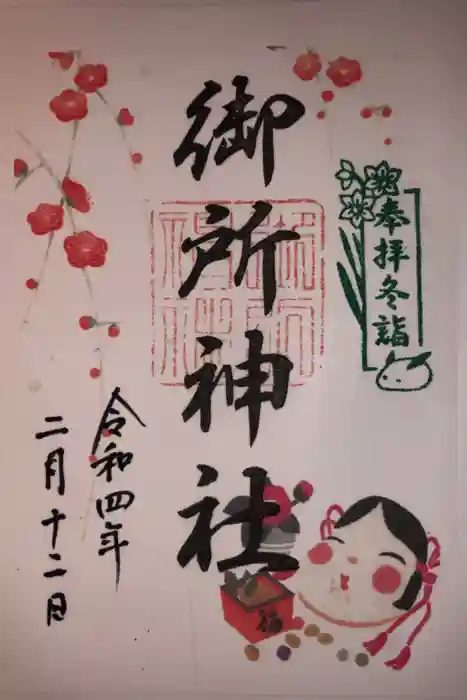 奉拝冬詣
御所神社
令和四年
二月十二日
福